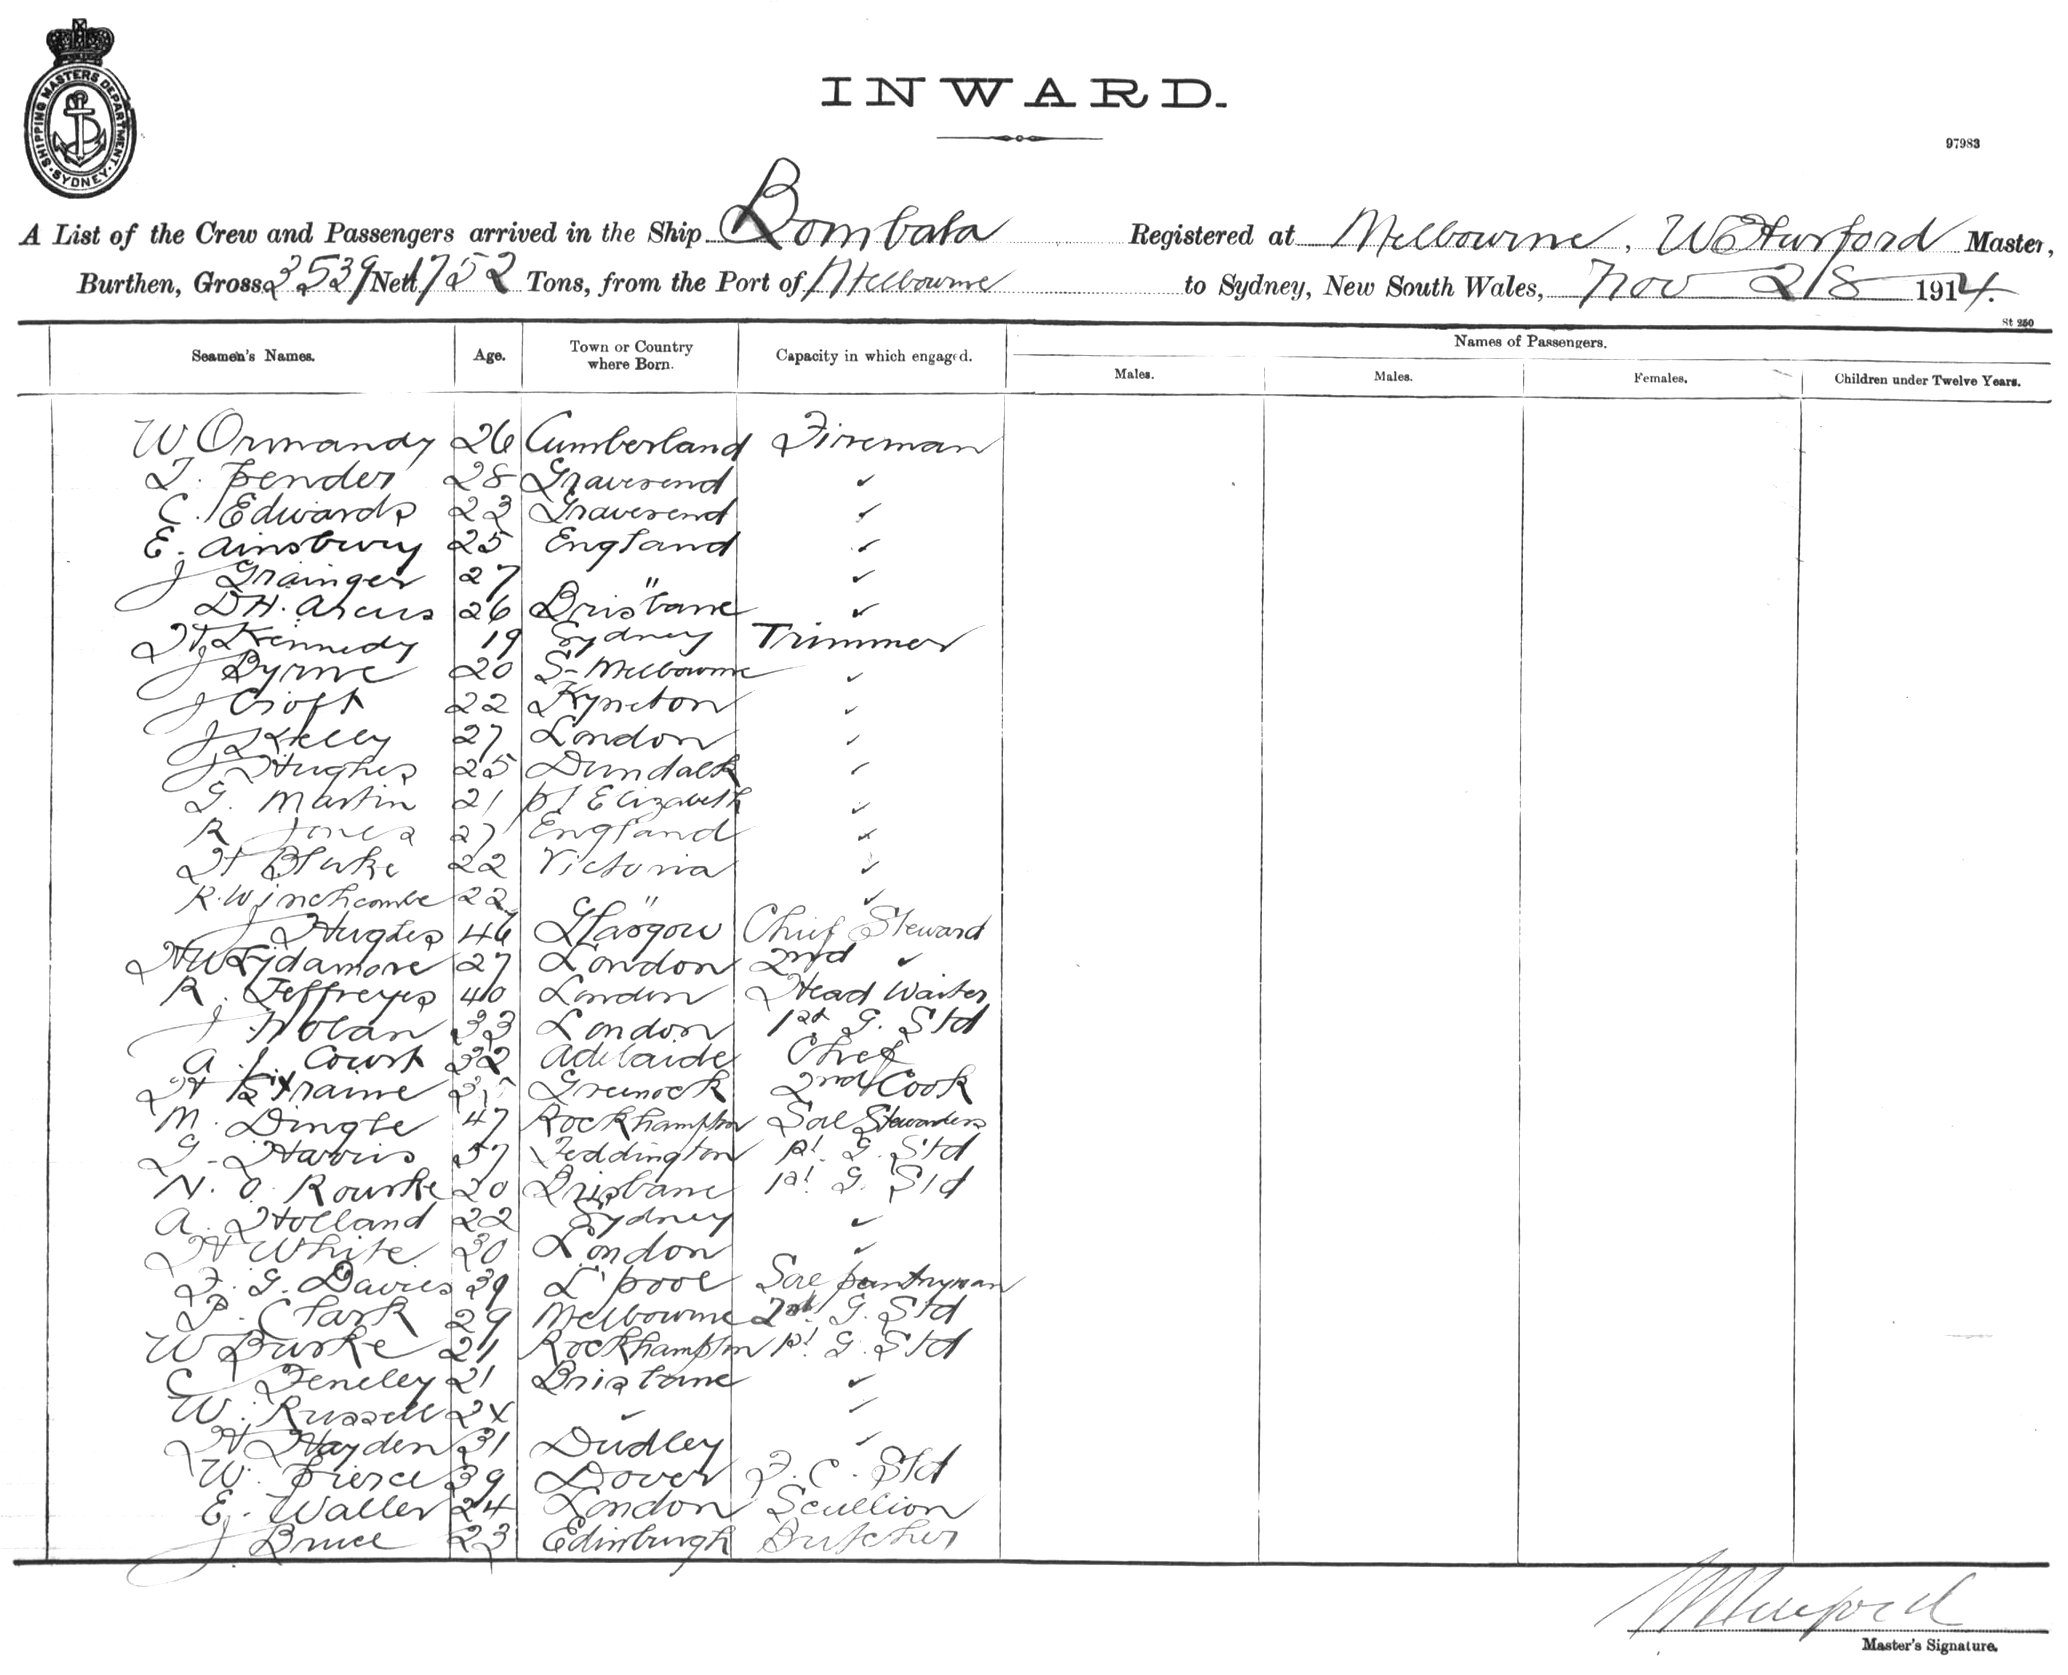 SHIPPING MASTERS DEPARTMENT · SYDNEY ·
INWARD.
97983
A List of the Crew and Passengers arrived in the Ship Bombala Registered at Melbourne, W Hurford Master,
Burthen, Gross 3539 Nett 1752 Tons, from the Port of Melbourne to Sydney, New South Wales, Nov 28 1914.
St 250
Seamen's Names. Age. Town or Country where Born. Capacity in which engaged. Names of Passengers.
Males. Males. Females. Children under Twelve Years.
W Ormandy 26 Cumberland Fireman
T. Pender 28 Gravesend ✓
C. Edwards 23 Gravesend ✓
E. Ainsbury 25 England ✓
J Grainger 27 " ✓
D H. Arcus 26 Brisbane ✓
H Kennedy 19 Sydney Trimmer
J Byrne 20 S- Melbourne ✓
J Croft 22 Kyneton ✓
J Kelly 27 London ✓
J Hughes 25 Dundalk ✓
G. Martin 21 Pt Elizabeth ✓
R Jones 27 England ✓
H Blake 22 Victoria ✓
R. Winchcombe 22 " ✓
J Hughes 46 Glasgow Chief Steward
H W Lydamore 27 London 2nd ✓
R. Jeffreyes 40 London Head Waiter
J Nolan 33 London 1st G. Std
A J. Court 32 Adelaide Chef
H Straine Greenock 2nd Cook
M. Dingle 47 Rockhampton Sal Stewardess
G. Harris 37 Teddington 1st. G. Std
N. O. Rourke 20 Brisbane 1st. G. Std
A. Holland 22 Sydney ✓
H White 30 London ✓
F. G. Davies 39 L'pool Sal pantryman
P. Clark 29 Melbourne 2nd G. Std
W Burke 21 Rockhampton 1st. G. Std
C Feneley 21 Brisbane ✓
W. Russell 24 ✓ ✓
H Hayden 31 Dudley ✓
W. Pierce 39 Dover F. C. Std
E. Waller 24 London Scullion
J Bruce 23 Edinburgh Butcher
W Hurford
Master's Signature.